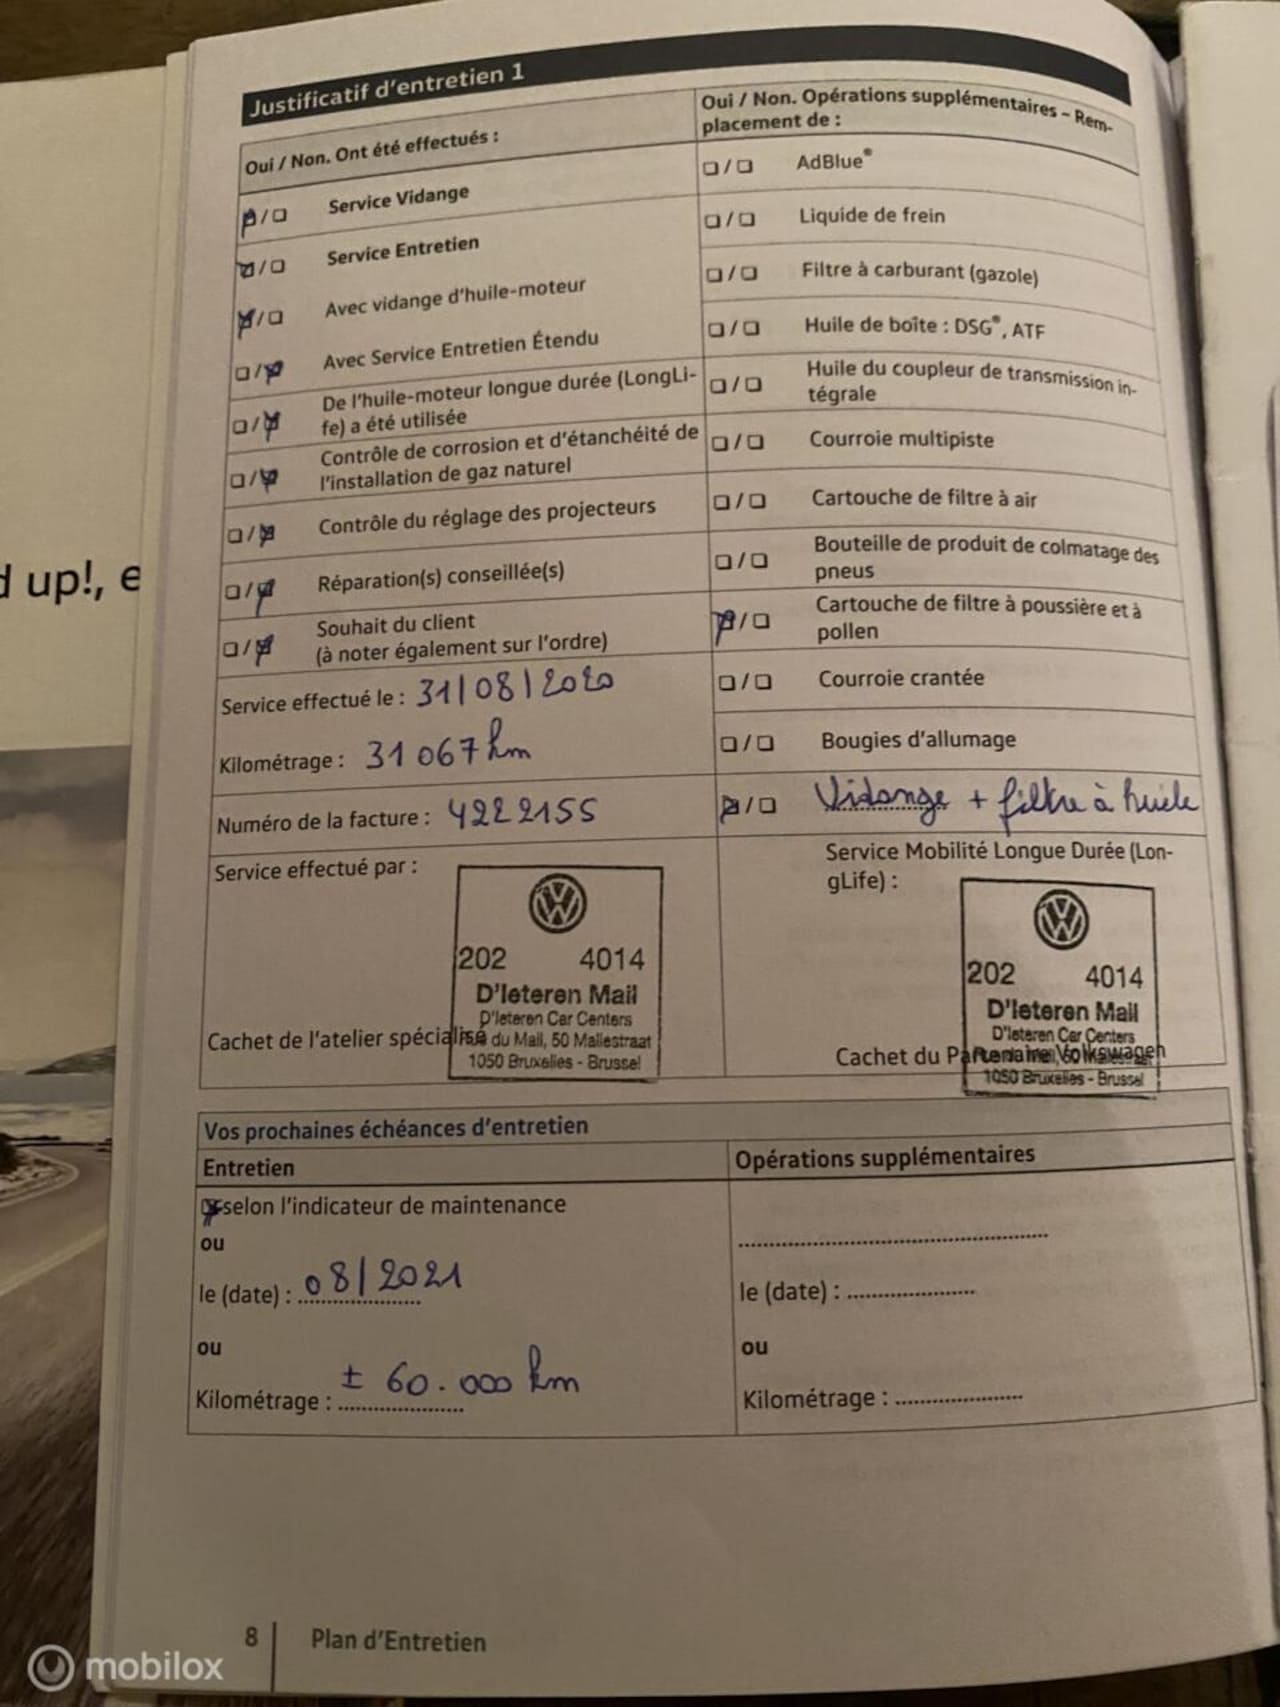 Justificatif d'entretien 1
Oui / Non. Ont été effectués :
❏/❏ Service Vidange
❏/❏ Service Entretien
❏/❏ Avec vidange d'huile-moteur
❏/❏ Avec Service Entretien Étendu
❏/❏ De l'huile-moteur longue durée (LongLi-
fe) a été utilisée
❏/❏ Contrôle de corrosion et d'étanchéité de
l'installation de gaz naturel
❏/❏ Contrôle du réglage des projecteurs
❏/❏ Réparation(s) conseillée(s)
❏/❏ Souhait du client
(à noter également sur l'ordre)
Service effectué le : 31/08/2020
Kilométrage : 31 067 km
Numéro de la facture : 4222155
Service effectué par :
202 4014
D'Ieteren Mail
D'Ieteren Car Centers
du Mail, 50 Maliestraat
1050 Bruxelles - Brussel
Cachet de l'atelier spécialisé
Oui / Non. Opérations supplémentaires – Rem-
placement de :
❏/❏ AdBlue®
❏/❏ Liquide de frein
❏/❏ Filtre à carburant (gazole)
❏/❏ Huile de boîte : DSG®, ATF
❏/❏ Huile du coupleur de transmission in-
tégrale
❏/❏ Courroie multipiste
❏/❏ Cartouche de filtre à air
❏/❏ Bouteille de produit de colmatage des
pneus
❏/❏ Cartouche de filtre à poussière et à
pollen
❏/❏ Courroie crantée
❏/❏ Bougies d'allumage
❏/❏ Vidange + filtre à huile
Service Mobilité Longue Durée (Lon-
gLife) :
202 4014
D'Ieteren Mail
D'Ieteren Car Centers
1050 Bruxelles - Brussel
Cachet du Partenaire Volkswagen
Vos prochaines échéances d'entretien
Entretien
selon l'indicateur de maintenance
ou
le (date) : 08/2021
ou
Kilométrage : ± 60.000 km
Opérations supplémentaires
le (date) :
ou
Kilométrage :
8 Plan d'Entretien
d up!, e
mobilox